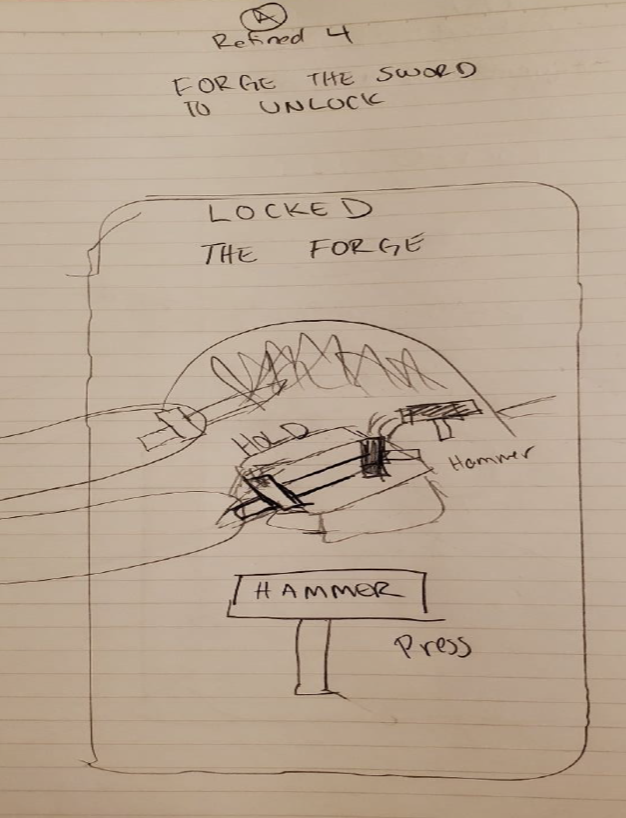 A
Refined 4
FORGE THE SWORD
TO UNLOCK
LOCKED
THE FORGE
HOLD
Hammer
HAMMER
Press